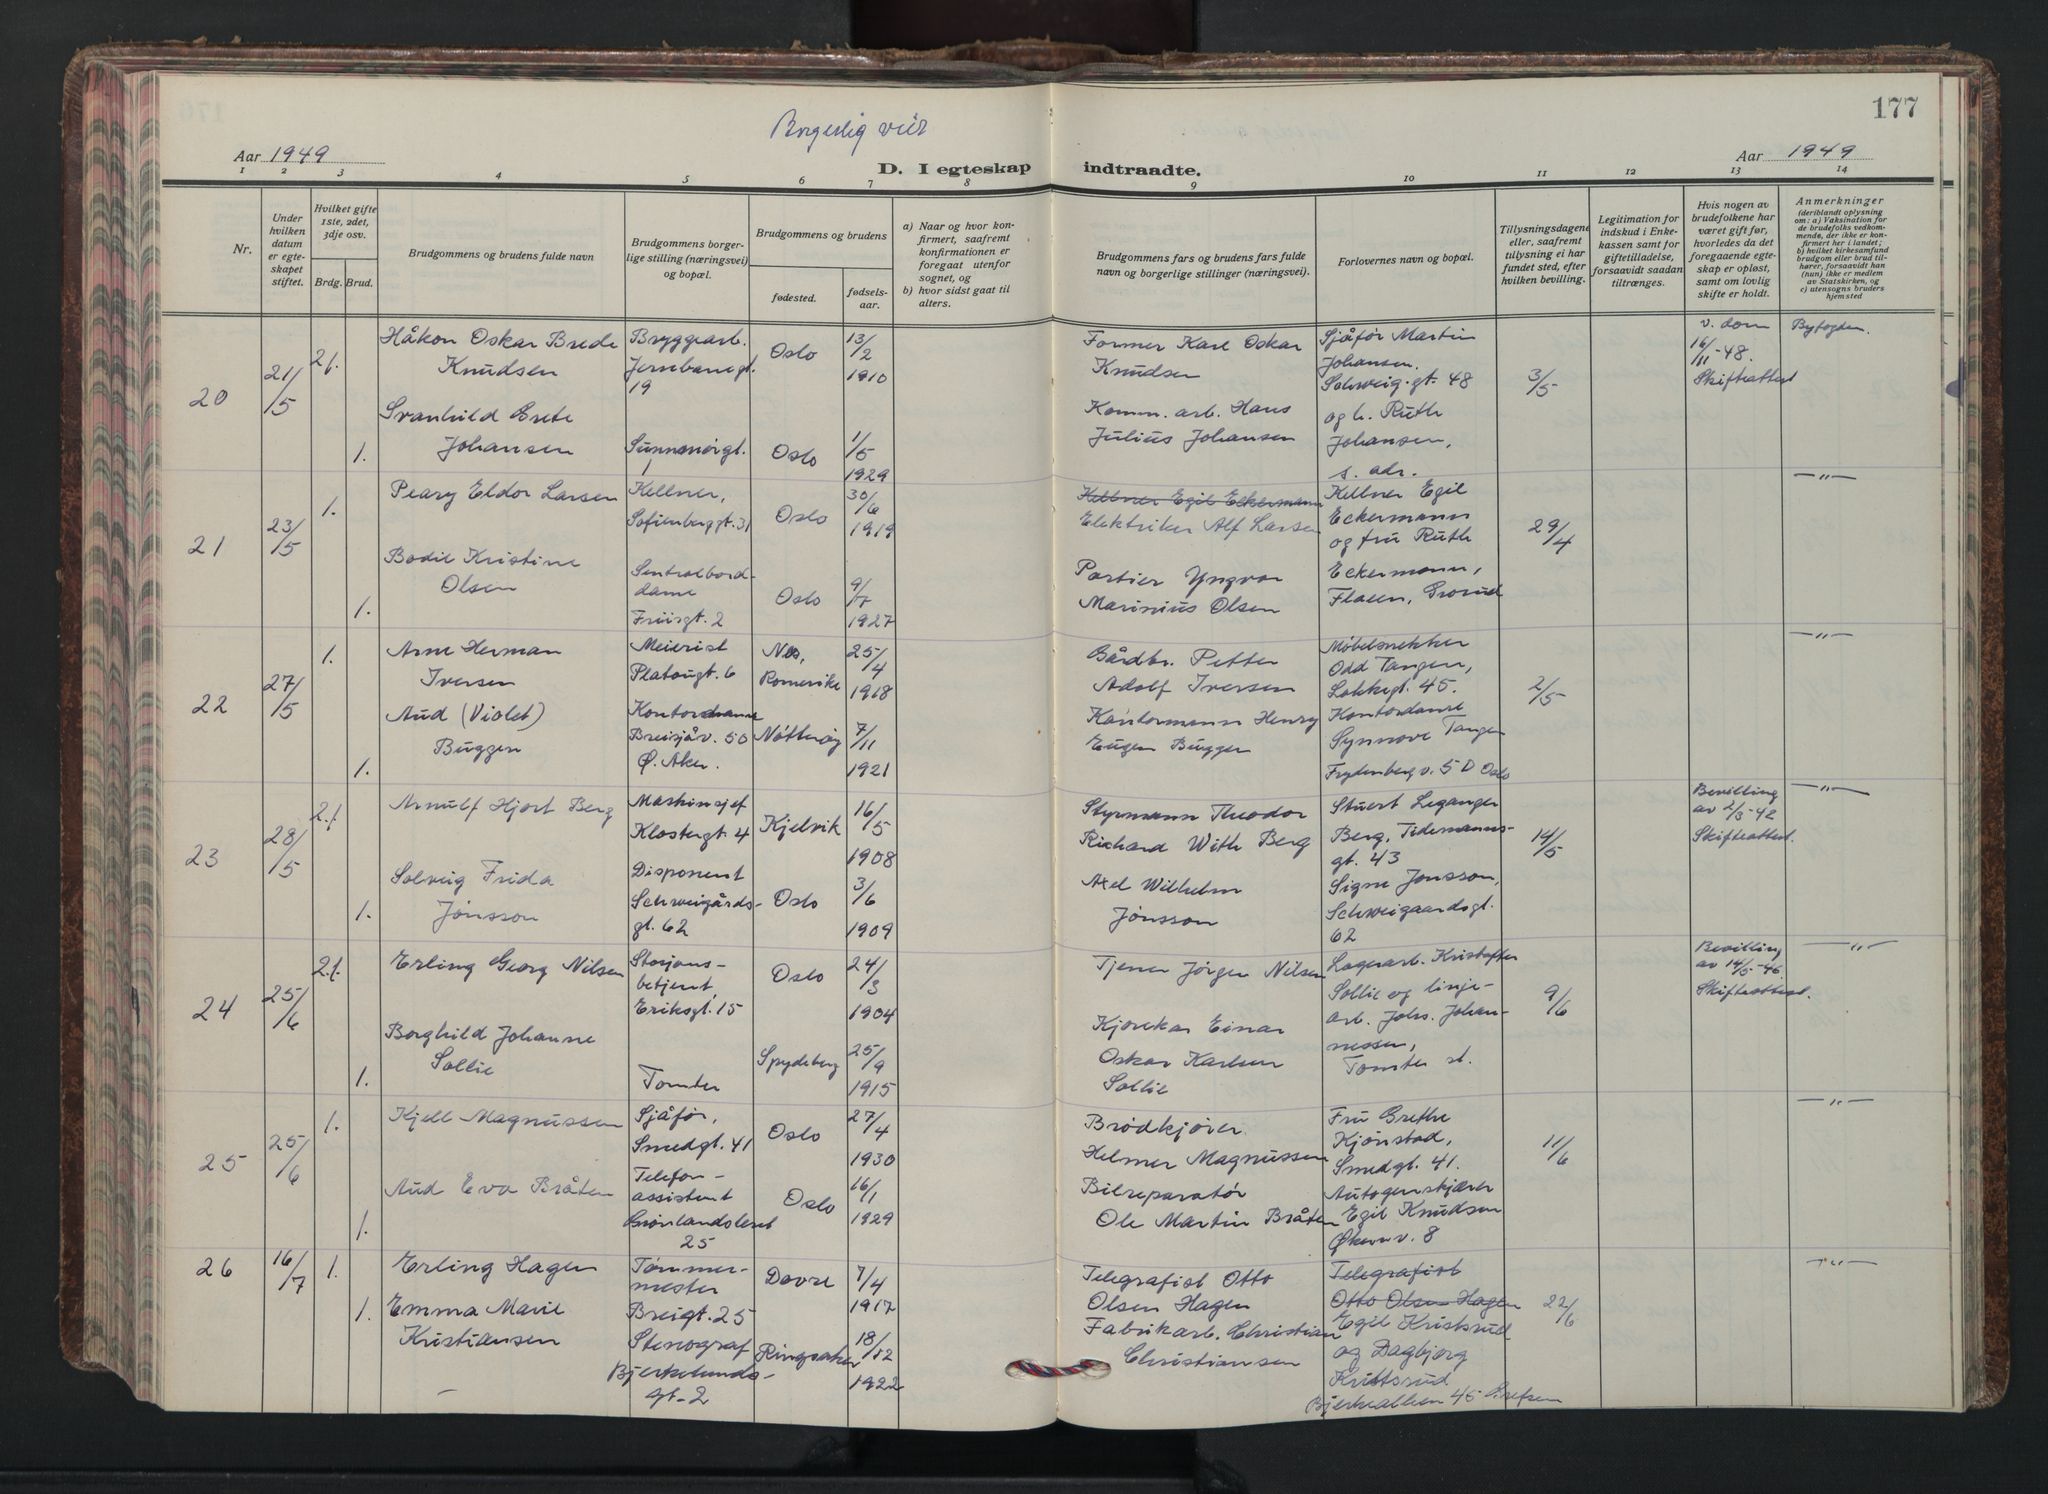 177
Borgerlig viet
Aar 1949
D. I egteskap indtraadte.
Aar 1949
1 2 3 4 5 6 7 8 9 10 11 12 13 14
Nr.
Under hvilken datum er egteskapet stiftet.
Hvilket gifte 1ste, 2det, 3dje osv.
Brdg. Brud.
Brudgommens og brudens fulde navn
Brudgommens borgerlige stilling (næringsvei) og bopæl.
Brudgommens og brudens
fødested.
fødselsaar.
a) Naar og hvor konfirmert, saafremt konfirmationen er foregaat utenfor sognet, og
b) hvor sidst gaat til alters.
Brudgommens fars og brudens fars fulde navn og borgerlige stillinger (næringsvei).
Forlovernes navn og bopæl.
Tillysningsdagene eller, saafremt tillysning ei har fundet sted, efter hvilken bevilling.
Legitimation for indskud i Enkekassen samt for giftetilladelse, forsaavidt saadan tiltrænges.
Hvis nogen av brudefolkene har været gift før, hvorledes da det foregaaende egteskap er opløst, samt om lovlig skifte er holdt.
Anmerkninger
(deriblandt oplysning om: a) Vaksination for de brudefolks vedkommende, der ikke er konfirmert her i landet; b) hvilket kirkesamfund brudgom eller brud tilhører, forsaavidt han (hun) ikke er medlem av Statskirken, og c) utensogns bruders hjemsted
20
21/5
2f.
Håkon Oskar Brede
Knudsen
Bryggearb.
Jernbanegt.
19
Oslo
13/2
1910
Former Karl Oskar
Knudsen
Sjåfør Martin
Johansen,
Schweig.gt. 48
3/5
v. dom
16/11-48.
Skifteattest
Byfogden.
1.
Svanhild Grete
Johansen
Sunnmørgt.
1
Oslo
1/5
1929
Komm. arb. Hans
Julius Johansen
og h. Ruth
Johansen,
s. adr.
21
23/5
1.
Peary Eldor Larsen
Kellner,
Sofienberggt. 31
Oslo
30/6
1919
Kellner Egil Eckermann
Elektriker Alf Larsen
Kellner Egil
Eckermann
og fru Ruth
29/4
—"—
1.
Bodil Kristine
Olsen
Sentralbord-
dame
Friisgt. 2
Oslo
9/7
1927
Portier Yngvar
Marinius Olsen
Eckermann,
Flaen, Grorud
22
27/5
1.
Arne Herman
Iversen
Meierist
Platougt. 6
Nes,
Romerike
25/4
1918
Bårdbr. Petter
Adolf Iversen
Møbelsnekker
Odd Tangen,
Lakkegt. 45.
2/5
—"—
1.
Aud (Violet)
Buggen
Kontordame
Breisjåv. 50
Ø. Aker.
Nøtterøy
7/11
1921
Kontormann Henry
Eugen Buggen
Kontordame
Synnøve Tangen
Frydenberg v. 5 D Oslo
23
28/5
2f.
Arnulf Hjort Berg
Maskinsjef
Klostergt. 4
Kjelvik
16/5
1908
Styrmann Theodor
Richard With Berg
Stuert Leganger
Berg, Tidemanns-
gt. 43
14/5
Bevilling
av 2/3-42
Skifteattest.
—"—
1.
Solveig Frida
Jónsson
Disponent
Schweigårds-
gt. 62
Oslo
3/6
1909
Axel Wilhelm
Jónsson
Signe Jonsson,
Schweigaardsgt.
62
24
25/6
2f.
Erling Georg Nilsen
Stasjons-
betjent,
Eriksgt. 15
Oslo
24/3
1904
Tjener Jørgen Nilsen
Lagerarb. Kristoffer
Sollie og linje-
arb. Johs. Johan-
nessen,
Tomter st.
9/6
Bevilling
av 14/5-46.
Skifteattest.
—"—
1.
Borghild Johanne
Sollie
Tomter
Spydeberg
25/9
1915
Kjørekar Einar
Oskar Karlsen
Sollie
25
25/6
1.
Kjell Magnussen
Sjåfør,
Smedgt. 41
Oslo
27/4
1930
Brødkjører
Helmer Magnussen
Fru Grethe
Kjønstad,
Smedgt. 41.
11/6
—"—
1.
Aud Eva Bråten
Telefon-
assistent
Grønlandsleret
25
Oslo
16/1
1929
Bilreparatør
Ole Martin Bråten
Autogenskjærer
Egil Knudsen
Økernv. 8
26
16/7
1.
Erling Hagen
Tømmer-
mester
Breigt. 25
Dovre
7/4
1917
Telegrafist Otto
Olsen Hagen
Telegrafist
Otto Olsen Hagen
22/6
—"—
1.
Emma Marie
Kristiansen
Stenograf
Bjerkelunds-
gt. 2
Ringsaker
18/12
1922
Fabrikarb. Christian
Christiansen
Egil Kristsrud
og Dagbjørg
Kristsrud
Bjerkealleen 45 Grefsen